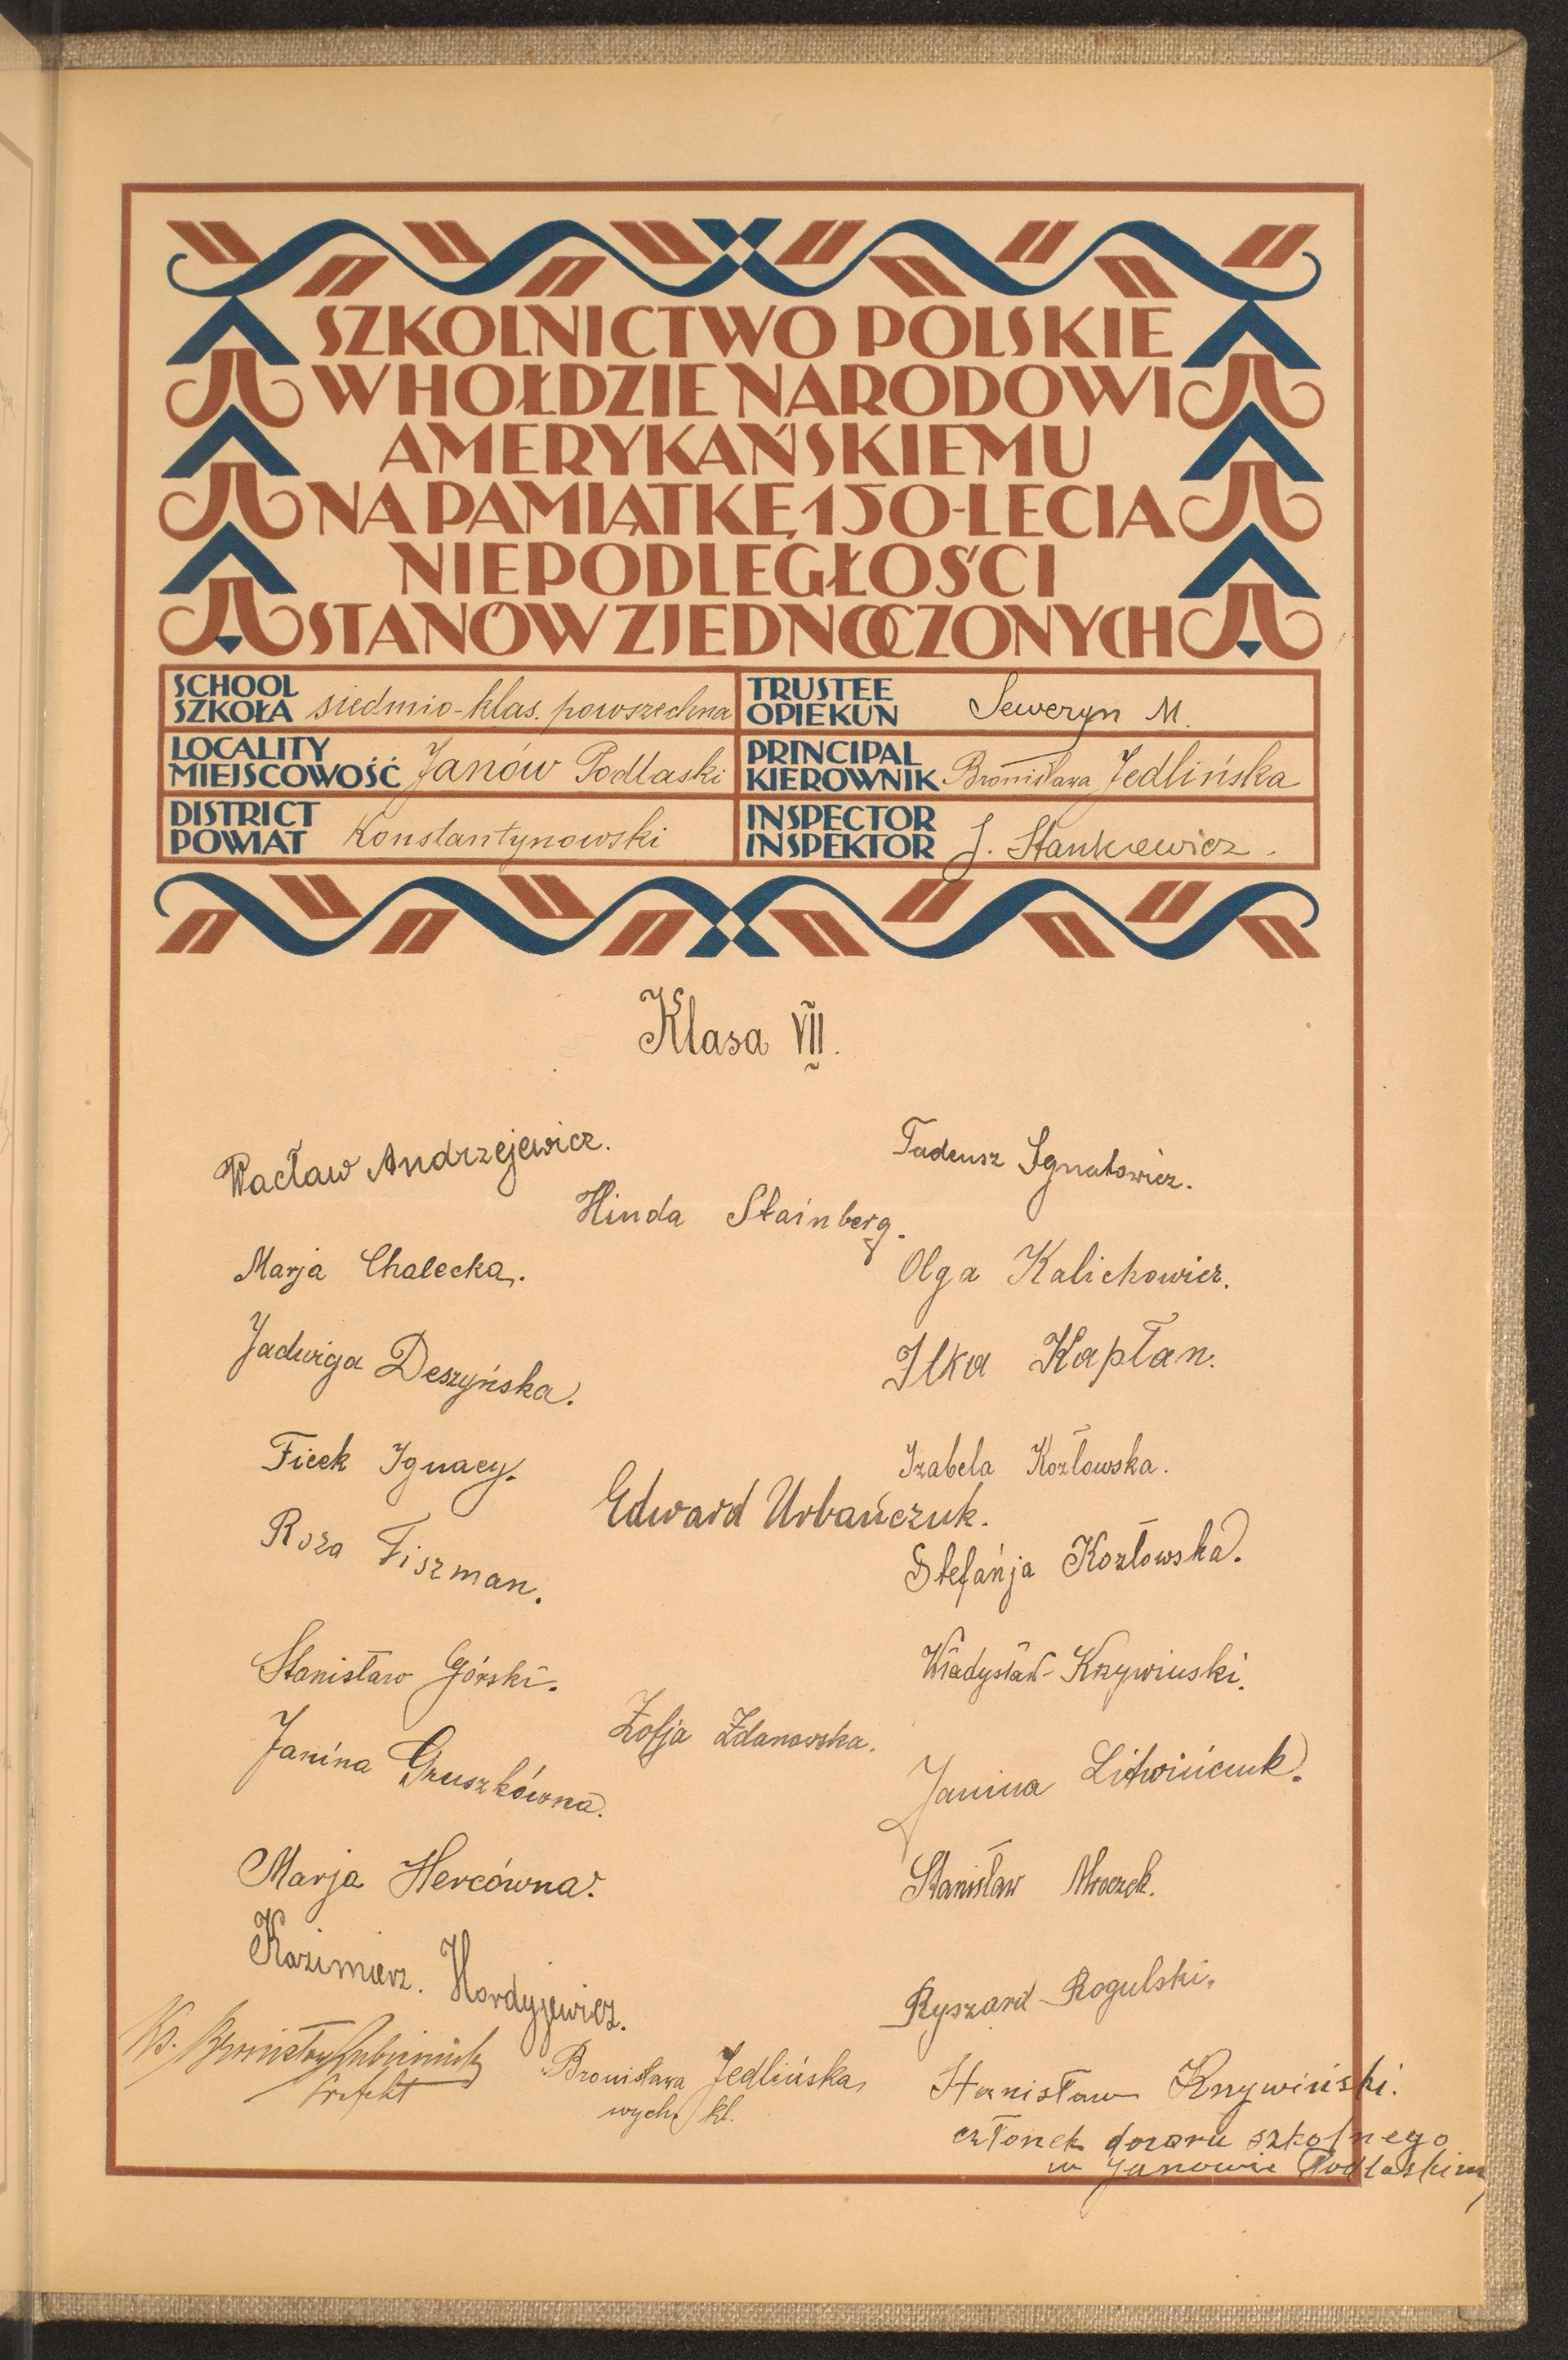 SZKOLNICTWO POLSKIE
W HOŁDZIE NARODOWI
AMERYKAŃSKIEMU
NA PAMIĄTKĘ 150-LECIA
NIEPODLEGŁOŚCI
STANÓW ZJEDNOCZONYCH
SCHOOL
SZKOŁA siedmio-klas. powszechna
TRUSTEE
OPIEKUN Seweryn M.
LOCALITY
MIEJSCOWOŚĆ Janów Podlaski
PRINCIPAL
KIEROWNIK Bronisława Jedlińska
DISTRICT
POWIAT Konstantynowski
INSPECTOR
INSPEKTOR J. Stankiewicz.
Klasa VII.
Wacław Andrzejewicz.
Tadeusz Ignatowicz.
Hinda Stainberg.
Marja Chalecka.
Olga Kalichowicz.
Jadwiga Deszyńska.
Ilka Kapłan.
Ficek Ignacy.
Izabela Kozłowska.
Edward Urbańczuk.
Roza Fiszman.
Stefańja Kozłowska.
Stanisław Górski.
Władysław Krzywiuski.
Zofja Zdanowska.
Janina Gruszkówna.
Janina Litwińcuk.
Marja Hercówna.
Stanisław Mroczek.
Kazimierz. Hordyjewicz.
Ryszard Rogulski.
Ks. Bronisław
Prefekt
Bronisława Jedlińska
wych. kl.
Stanisław Krzywiński.
członek dozoru szkolnego
w Janowie Podlaskim